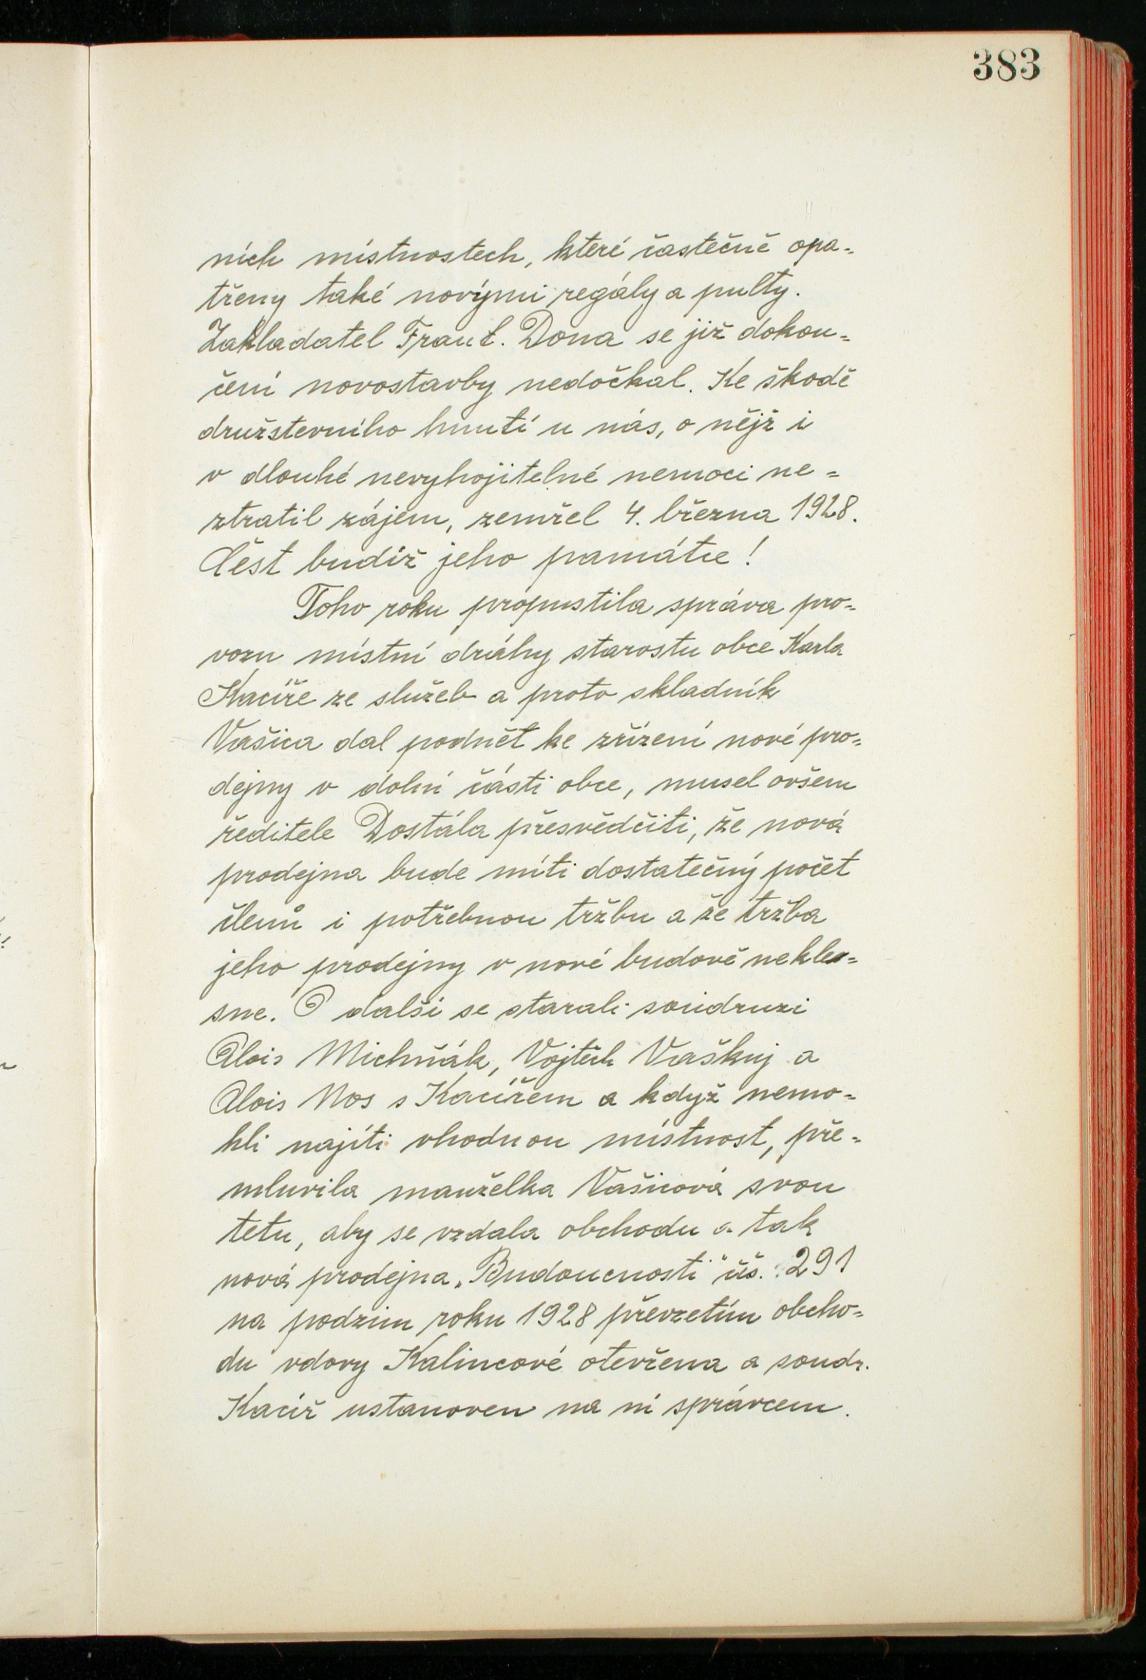 383
ních místnostech, které částečně opa-
třeny také novými regály a pulty.
Zakladatel Frant. Dona se již dokon-
čení novostavby nedočkal. Ke škodě
družstevního hnutí u nás, o nějž i
v dlouhé nevyhojitelné nemoci ne-
ztratil zájem, zemřel 4. března 1928.
Čest budiž jeho památce!
Toho roku propustila správa pro-
vozu místní dráhy starostu obce Karla
Kacíře ze služeb a proto skladník
Vašica dal podnět ke zřízení nové pro-
dejny v dolní části obce, musel ovšem
ředitele Dostála přesvědčiti, že nová
prodejna bude míti dostatečný počet
členů i potřebnou tržbu a že tržba
jeho prodejny v nové budově nekle-
sne. O další se starali soudruzi
Alois Michňák, Vojtěch Vaškuj a
Alois Nos s Kacířem a když nemo-
hli najíti vhodnou místnost, pře-
mluvila manželka Vašicová svou
tetu, aby se vzdala obchodu a tak
nová prodejna „Budoucnosti" čís. 291
na podzim roku 1928 převzetím obcho-
du vdovy Kalincové otevřena a soudr.
Kacíř ustanoven na ní správcem.